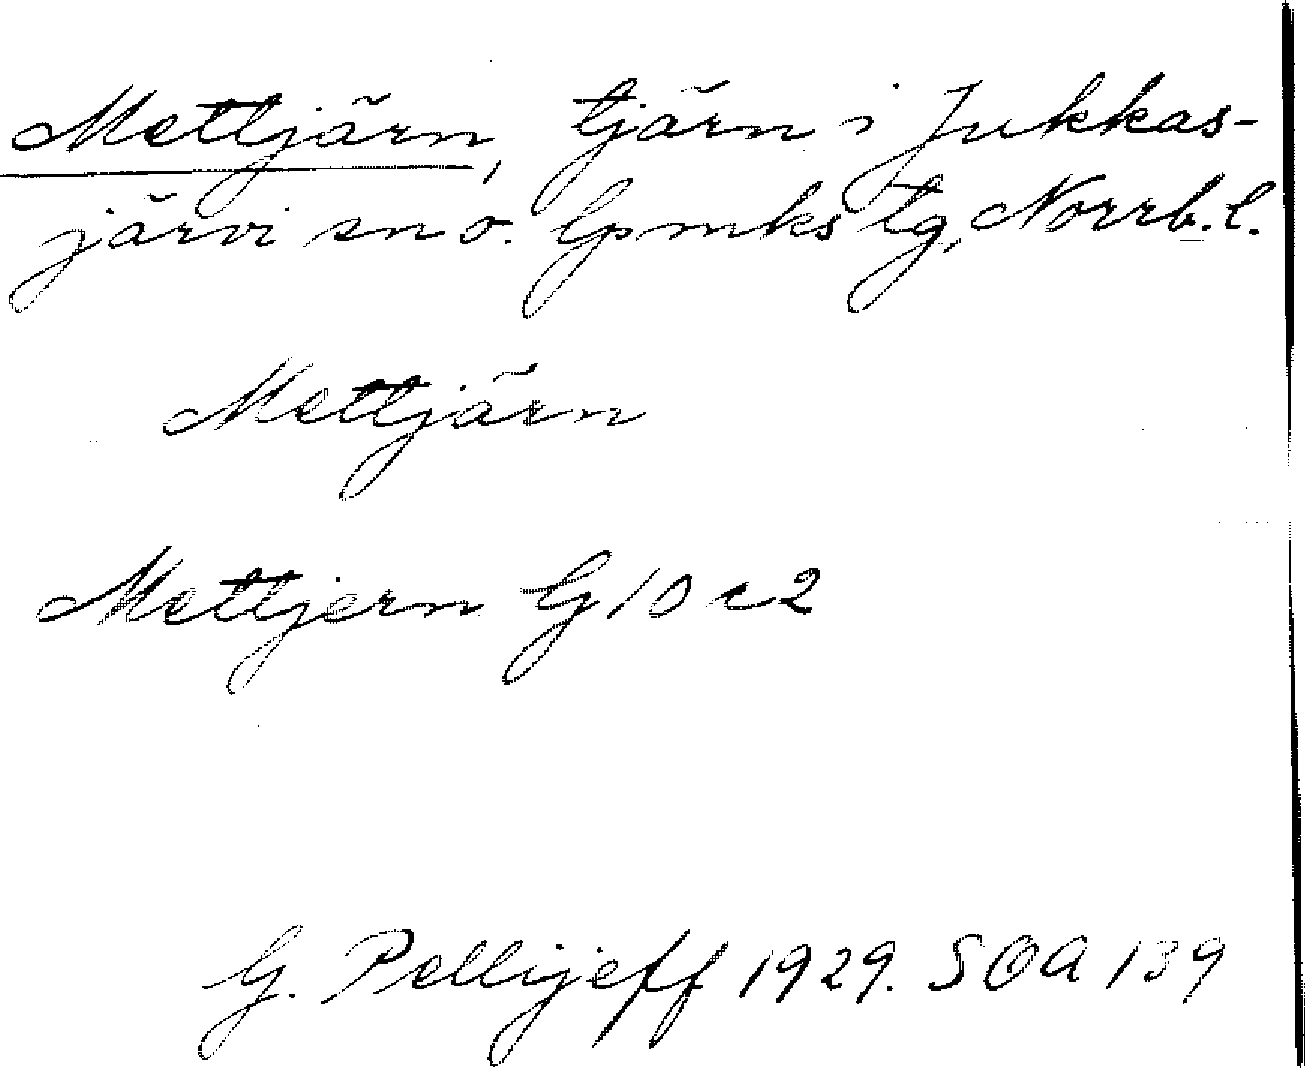 Mettjärn, tjärn i Jukkas-
järvi sn o. lpmks tg, Norrb. l.
Mettjärn
Mettjern G 10 c 2
G. Pellijeff 1929. SOA 139